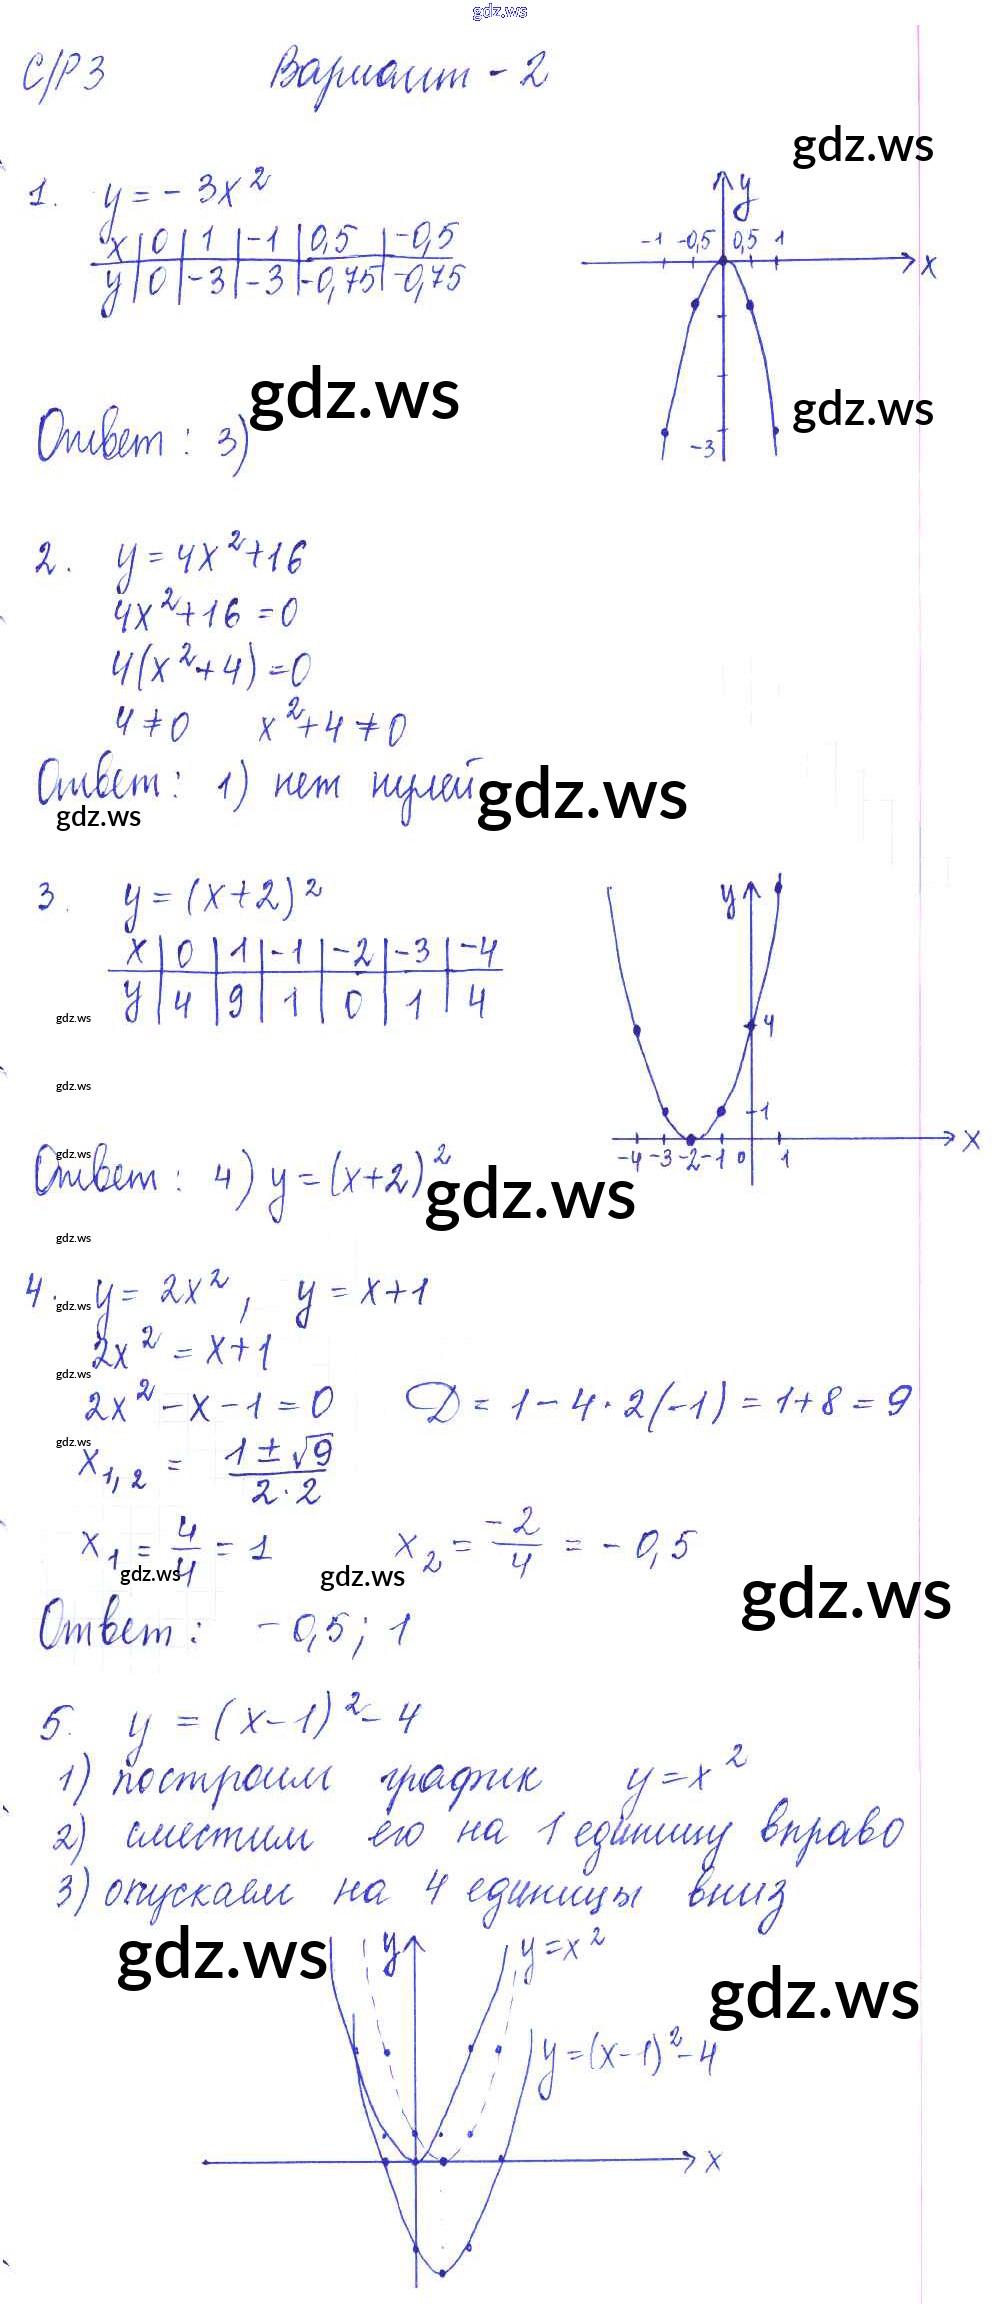 gdz.ws
С/Р 3 Вариант - 2
gdz.ws
1. y = - 3x²
x | 0 | 1 | -1 | 0,5 | -0,5
y | 0 | -3 | -3 | -0,75 | -0,75
y
-1 -0,5 0,5 1
x
-3
gdz.ws
gdz.ws
Ответ: 3)
2. y = 4x² + 16
4x² + 16 = 0
4(x² + 4) = 0
4 ≠ 0 x² + 4 ≠ 0
Ответ: 1) нет нулей
gdz.ws
gdz.ws
3. y = (x + 2)²
x | 0 | 1 | -1 | -2 | -3 | -4
y | 4 | 9 | 1 | 0 | 1 | 4
y
4
1
-4 -3 -2 -1 0 1
x
gdz.ws
gdz.ws
gdz.ws
Ответ: 4) y = (x + 2)²
gdz.ws
gdz.ws
4. y = 2x², y = x + 1
gdz.ws
2x² = x + 1
gdz.ws
2x² - x - 1 = 0 D = 1 - 4 · 2(-1) = 1 + 8 = 9
gdz.ws
x1,2 = (1 ± √9)/(2 · 2)
x1 = 4/4 = 1 x2 = -2/4 = - 0,5
gdz.ws
gdz.ws
gdz.ws
Ответ: - 0,5; 1
5. y = (x - 1)² - 4
1) построим график y = x²
2) сместим его на 1 единицу вправо
3) опускаем на 4 единицы вниз
gdz.ws
y
y = x²
gdz.ws
y = (x - 1)² - 4
x